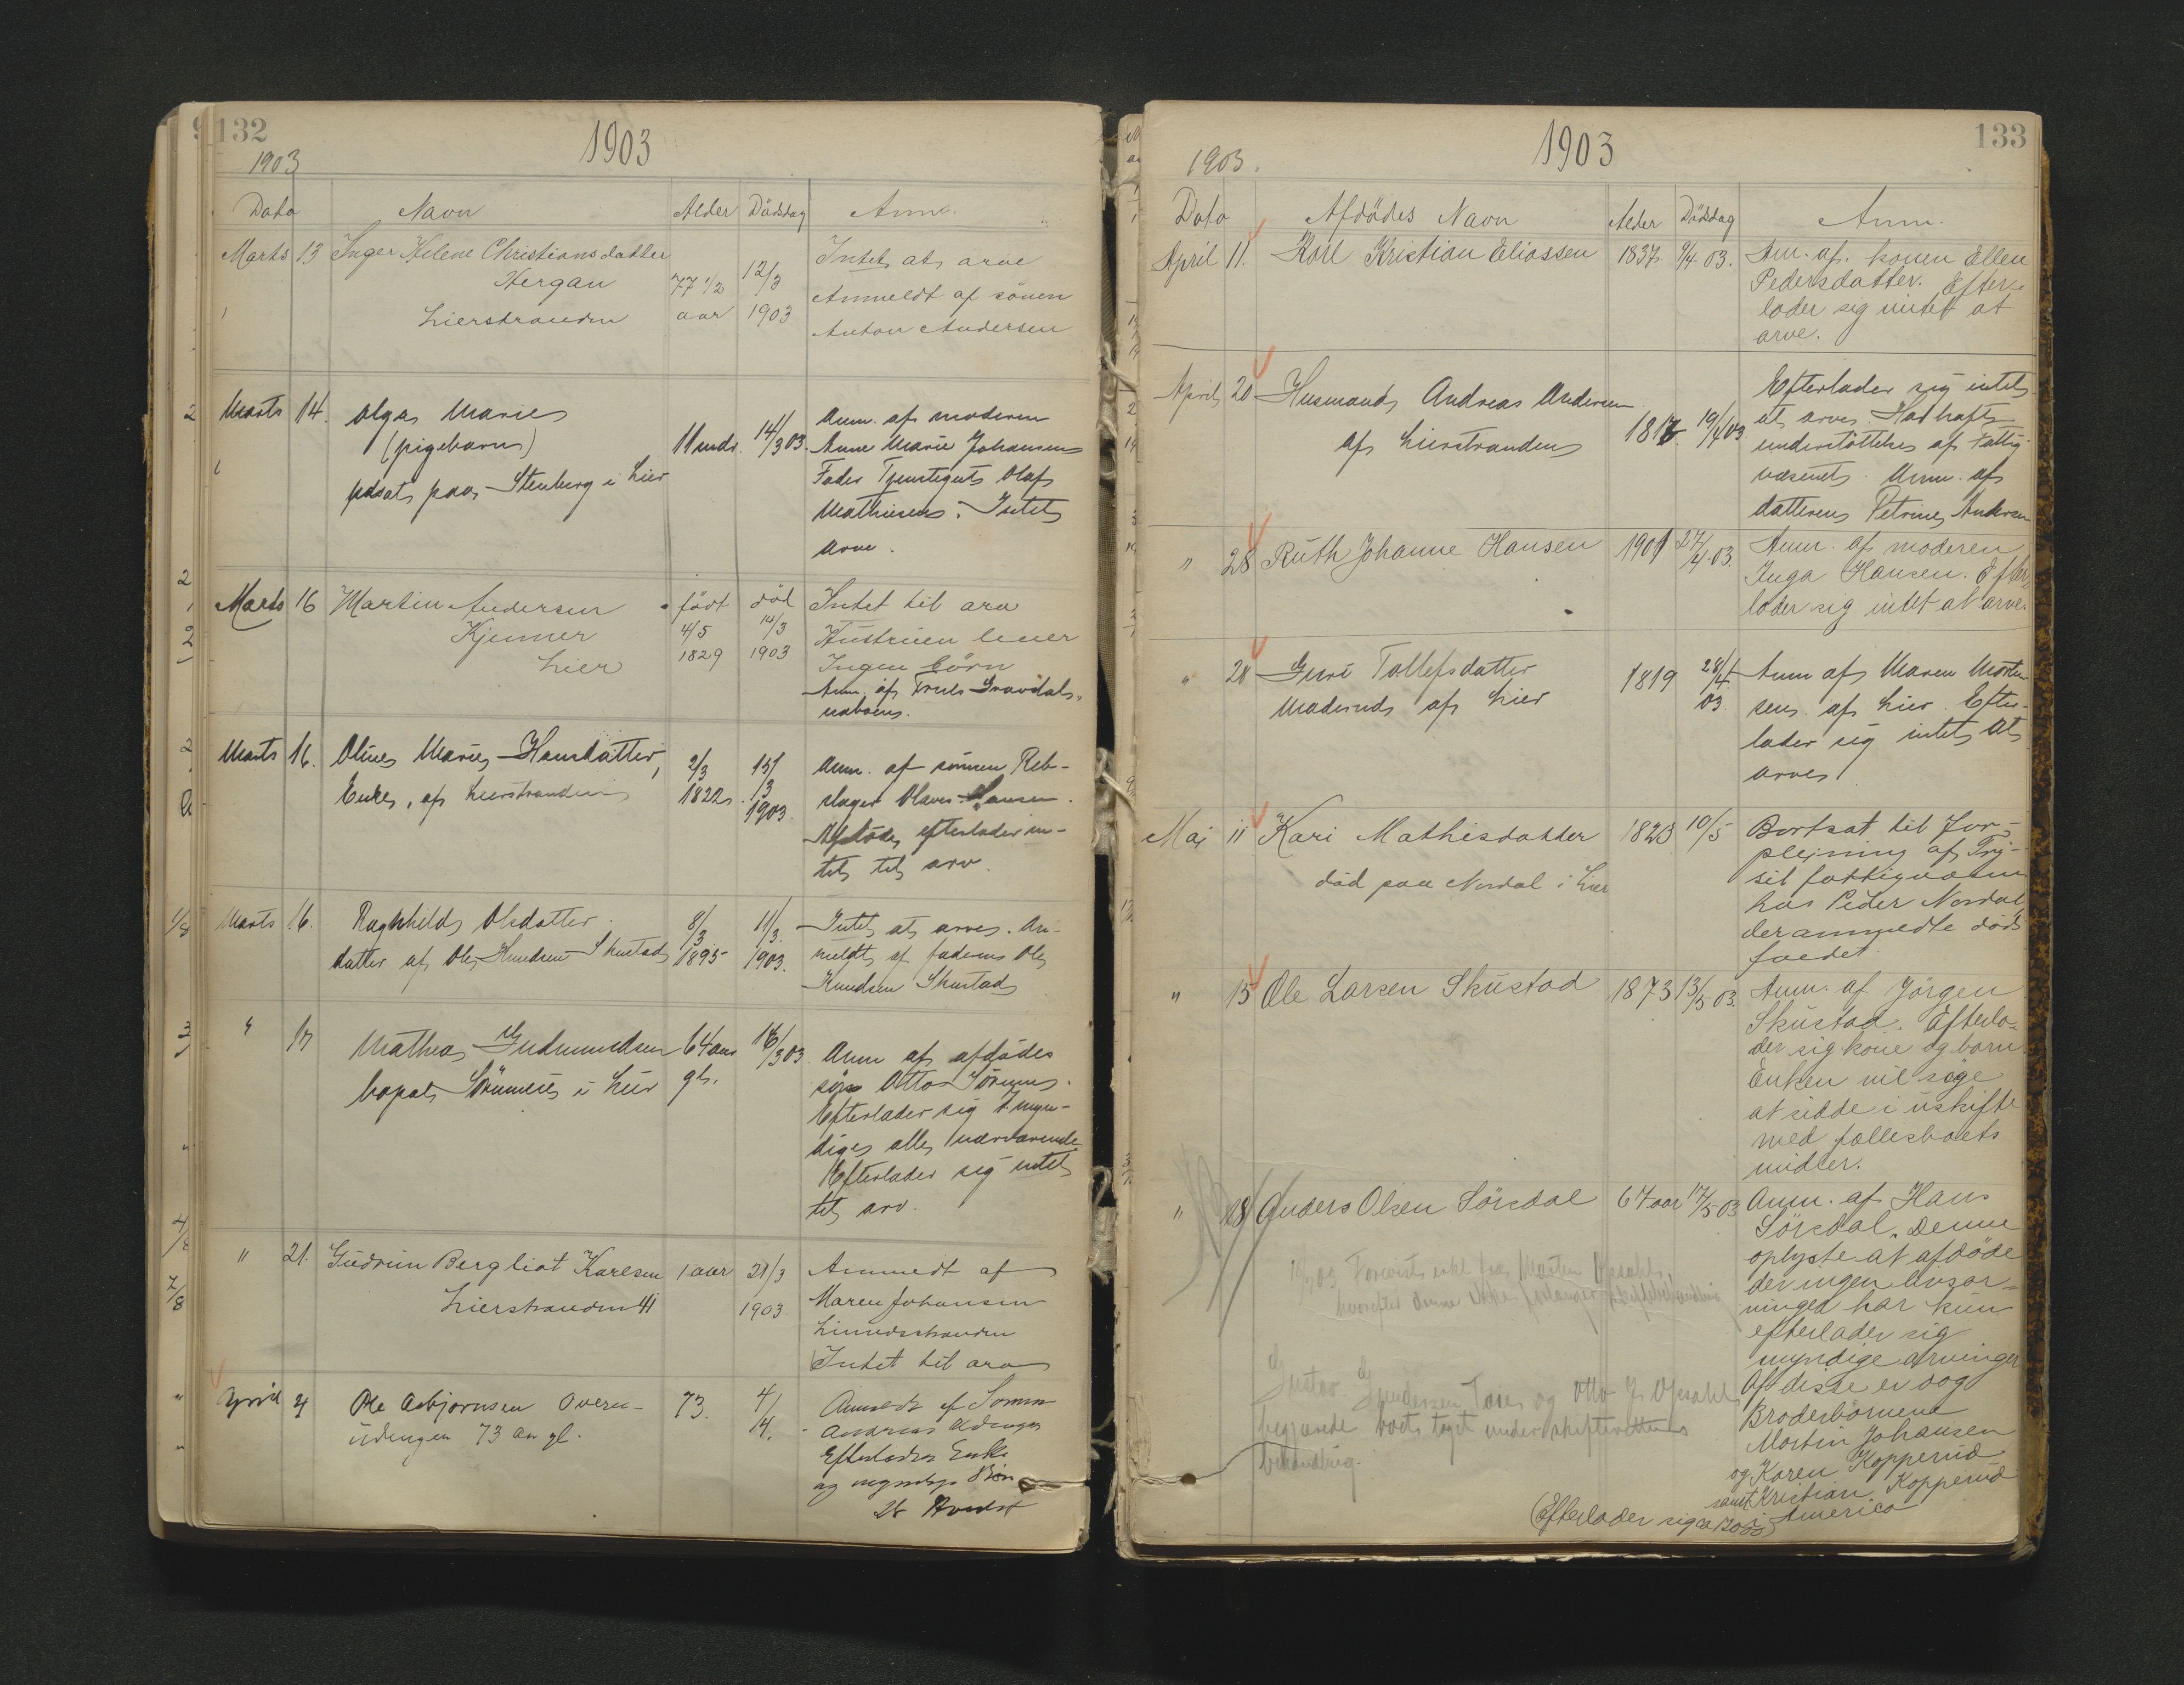 132
1903
1903
Dato Navn Alder Dödsdag Anm.
Marts 13 Inger Helene Christiansdatter
Hergan
Lierstranden
77 1/2
aar
12/3
1903
Intet at arve
Anmeldt af sönen
Anton Andersen
Marts 14. Olga Marie
(pigebarn)
udsat paa Stenberg i Lier
11 mdr. 14/3 03.
Anm. af moderen
Anne Marie Johansen
Fader Tjenstegut Olaf
Mathisen. Intet
arve.
Marts 16 Martin Andersen
Kjenner
Lier
födt
4/5
1829
död
14/3
1903
Intet til arv
Hustruen lever
Ingen börn
Anm. af Truls Gravdal,
naboen.
Marts 16. Oline Marie Hansdatter,
Enke, af Lierstranden
2/3
1822
15/
/3
1903.
Anm. af sönnen Reb-
slager Olaves Hansen.
Afdöde efterlader in-
tet til arv.
Marts 16. Ragnhild Olsdatter
datter af Ole Knudsen Skustad
8/
3
1895
11/
3.
1903.
Intet at arve. An-
meldt af faderen Ole
Knudsen Skustad
" 17 Mathea Gudmundsen
bopæl Sörumeie i Lier
64 aar
gl.
16/3 03.
Anm af afdödes
sön Otto Sörum.
Efterlader sig 7 myn-
dige alle nærværende
Efterlader sig intet
til arv.
" 21. Gudrun Bergliot Karlsen
Lierstranden
1 aar 21/3
1903
Anmeldt af
Maren Johansen
Linnesstranden
Intet til arv
April 4 Ole Asbjörnsen Overn-
udengen 73 aar gl.
73.
4/
4.
Anmeldt af Sönnen
Andreas
Efterlader Enke
og myndige Börn
133
1903
1903.
Dato Afdödes Navn Alder Dödsdag Anm.
April 11. Karl Kristian Eliassen 1837. 9/4. 03.
Anm. af. konen Ellen
Pedersdatter. Efter-
lader sig intet at
arve.
April 20 Husmand Andreas Andersen
af Lierstranden
1817. 19/4 03.
Efterlader sig intet
at arve. Har haft
understöttelse af Fattig
væsenet. Anm. af
datteren Petrine Andersen
" 28 Ruth Johanne Hansen 1901 27/4. 03.
Anm. af moderen
Inga Hansen. Efter
lader sig intet at arve.
" 28 Guri Tollefsdatter
af Lier
1819
28/4.
03.
Anm af Maren Morten
sen af Lier. Efter-
lader sig intet at
arve.
Maj 11 Kari Mathisdatter
död paa Nordal i Lier
1823 10/5
Bortsat til For-
plejning af Try-
sil fattigvæsen
hos Peder Nordal,
der anmeldte döds
faldet.
" 15 Ole Larsen Skustad 1873 13/5 03.
Anm. af Jörgen
Skustad. Efterla-
der sig kone og barn.
Enken vil söge
at sidde i uskifte
med fællesboets
midler.
" 18 Anders Olsen Sörsdal 67 aar 17/5 03
Anm. af Hans
Sörsdal. Denne
oplyste at afdöde
der ingen livsar-
vinger har kun
efterlader sig
myndige arvinger
Af disse er dog
Broderbörnene
Martin Johansen
og Karen Kopperud
samt Kristian Kopperud
i America
(Efterlader sig ca
Gustav Gundersen og Otto Opsahl
begjærede boets taget under skifterettens
behandling.